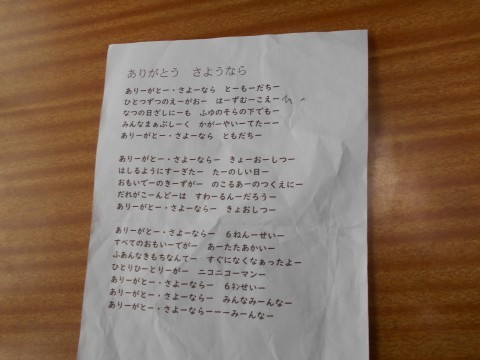 ありがとう　さようなら
ありーがとー・さよーなら　とーもーだちー
ひとつずつのえーがおー　はーずむーこえー
なつの日ざしにーも　ふゆのそらの下でもー
みんなまぁぶしーく　かがーやいーてたーー
ありーがとー・さよーなら　ともだちー
ありーがとー・さよーならー　きょーおーしつー
はしるようにすーぎたー　たーのしい日ー
おもいでーのきーずがー　のこるあーのつくえにー
だれがこーんどーは　すわーるんーだろうー
ありーがとー・さよーならー　きょおしつー
ありーがとー・さよーならー　６ねんーせいー
すべてのおもいーでがー　あーたたあかいー
ふあんなきもちなんてー　すぐになくなぁったよー
ひとりひーとりーがー　ニコニコーマンー
ありーがとー・さよーならー　６ﾈﾝせいー
ありーがとー・さよーならー　みんなみーんなー
ありーがとー・さよーならーーーみーんなー